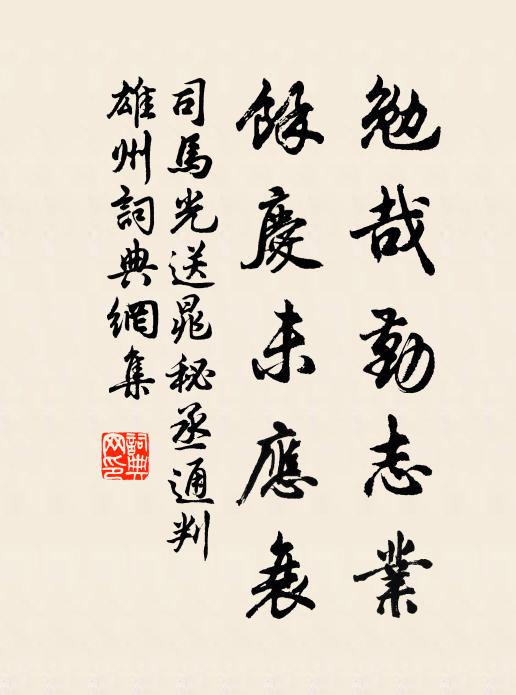 勉哉勤志業
餘慶未應衰
司馬光送晁秘丞通判
雄州詞典網集
詞典
网印